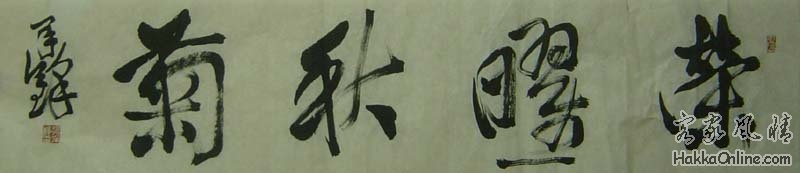 榮曜秋菊
客家風情
HakkaOnline.com